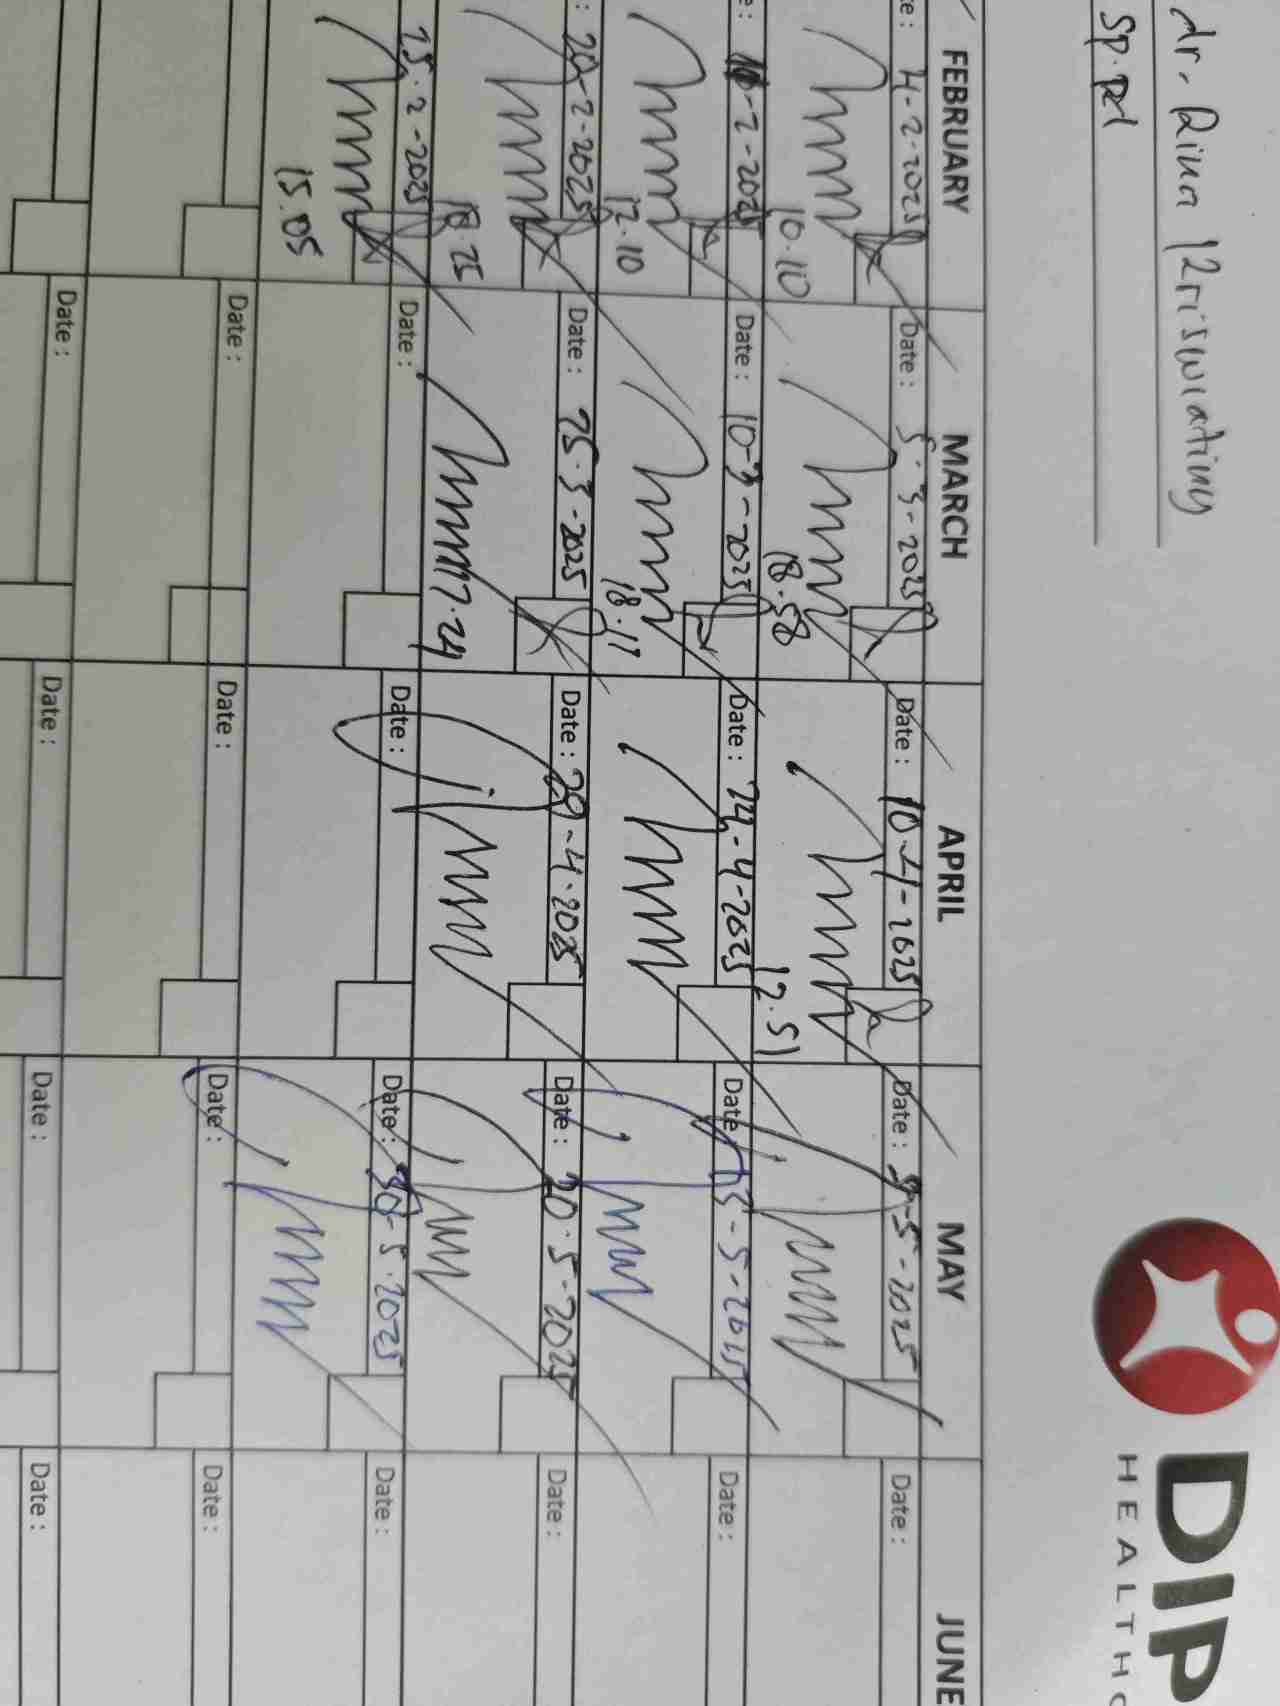 dr. Rina
Sp.Pd
DIP
HEALTHC
FEBRUARY MARCH APRIL MAY JUNE
te: 4-2-2025 Date: 5-3-2025 Date: 10-4-2025 Date: 5-2025 Date:
10.10 18.58 12.51
e: 2-2025 Date: 10-3-2025 Date: 24-4-2025 Date 13-5-2025 Date:
12.10 18.17
: 20-2-2025 Date: 25.3-2025 Date: 29-4-2025 Date: 20.5-2025 Date:
18.25 17.24
25.2-2025 Date: Date: Date: 30-5-2025 Date:
15.05
Date: Date: Date: Date:
Date: Date: Date: Date: